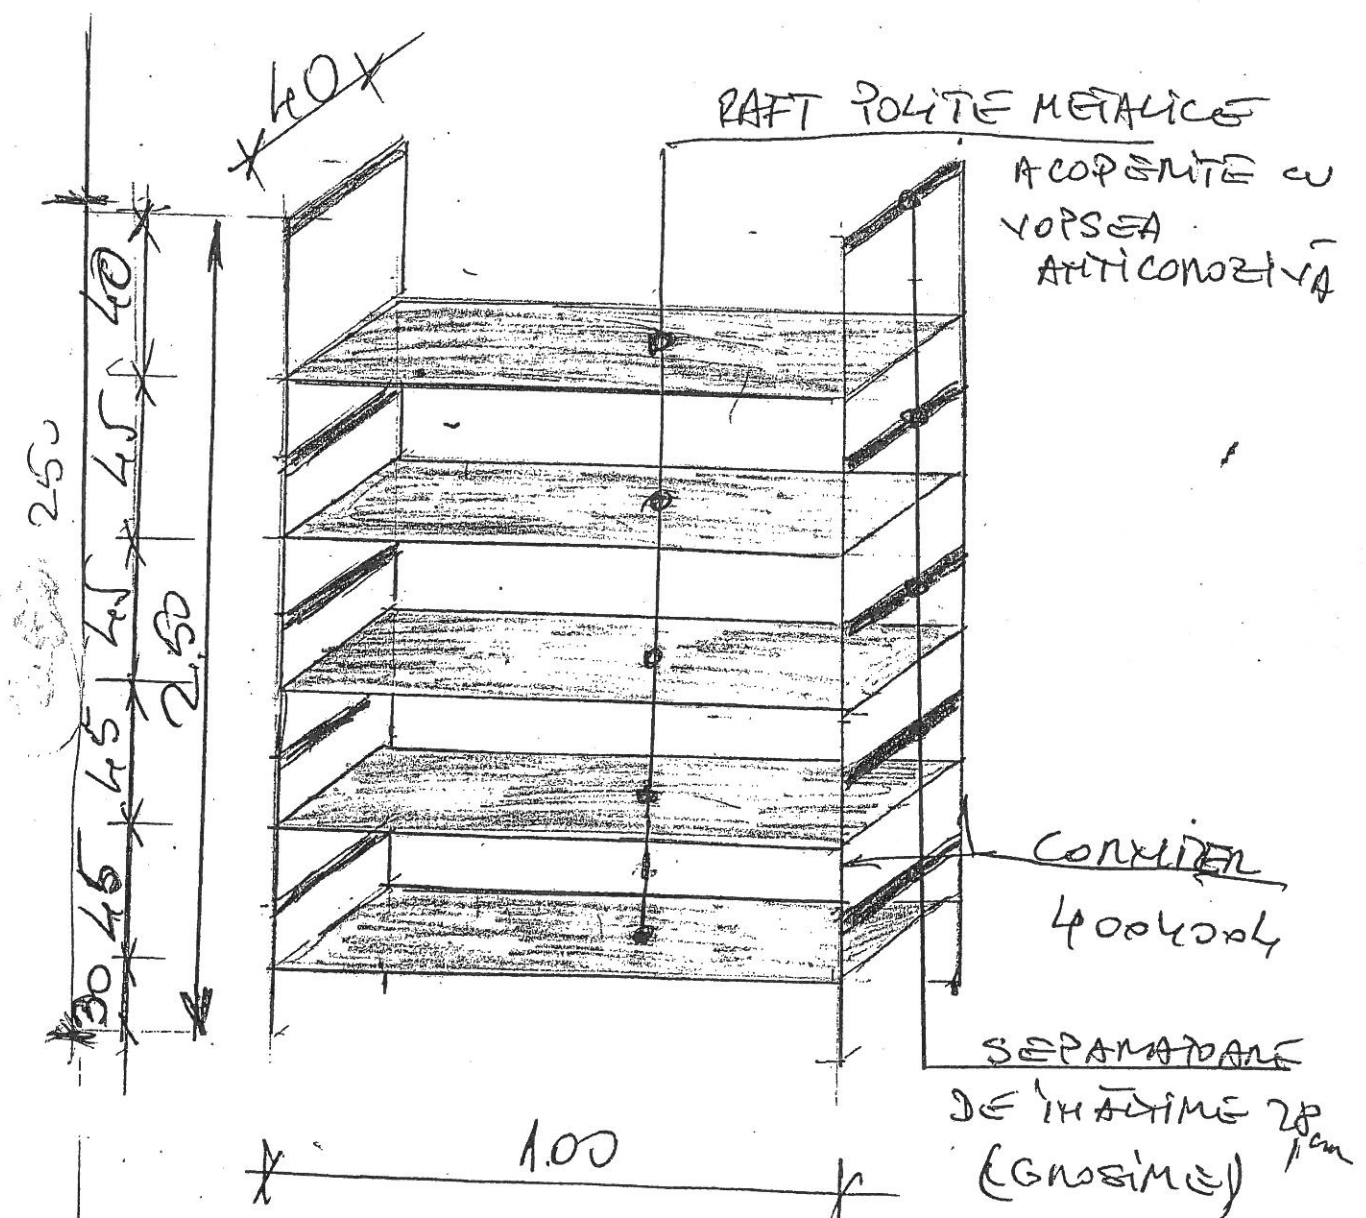 40
RAFT POLITE METALICE
ACOPERITE CU
VOPSEA
ANTICOROZIVĂ
40
45
250
45
2.50
45
45
30
CORNIER
SEPARATOARE
DE INĂLTIME 28 cm
(GROSIME)
1.00